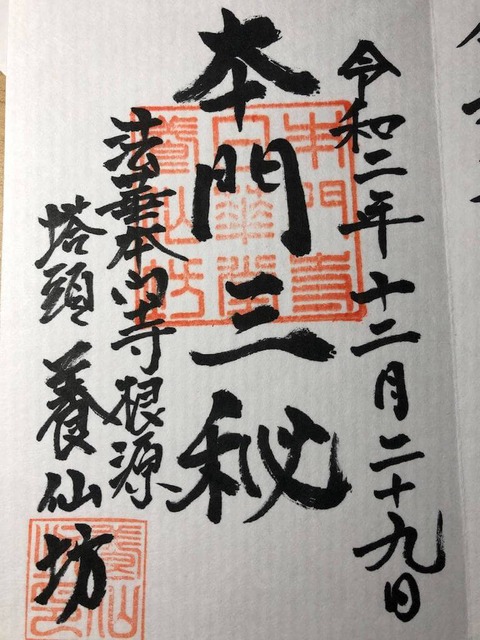 令和二年十二月二十九日
本門三秘
法華本門寺根源
塔頭 養仙坊
本門寺
養仙坊